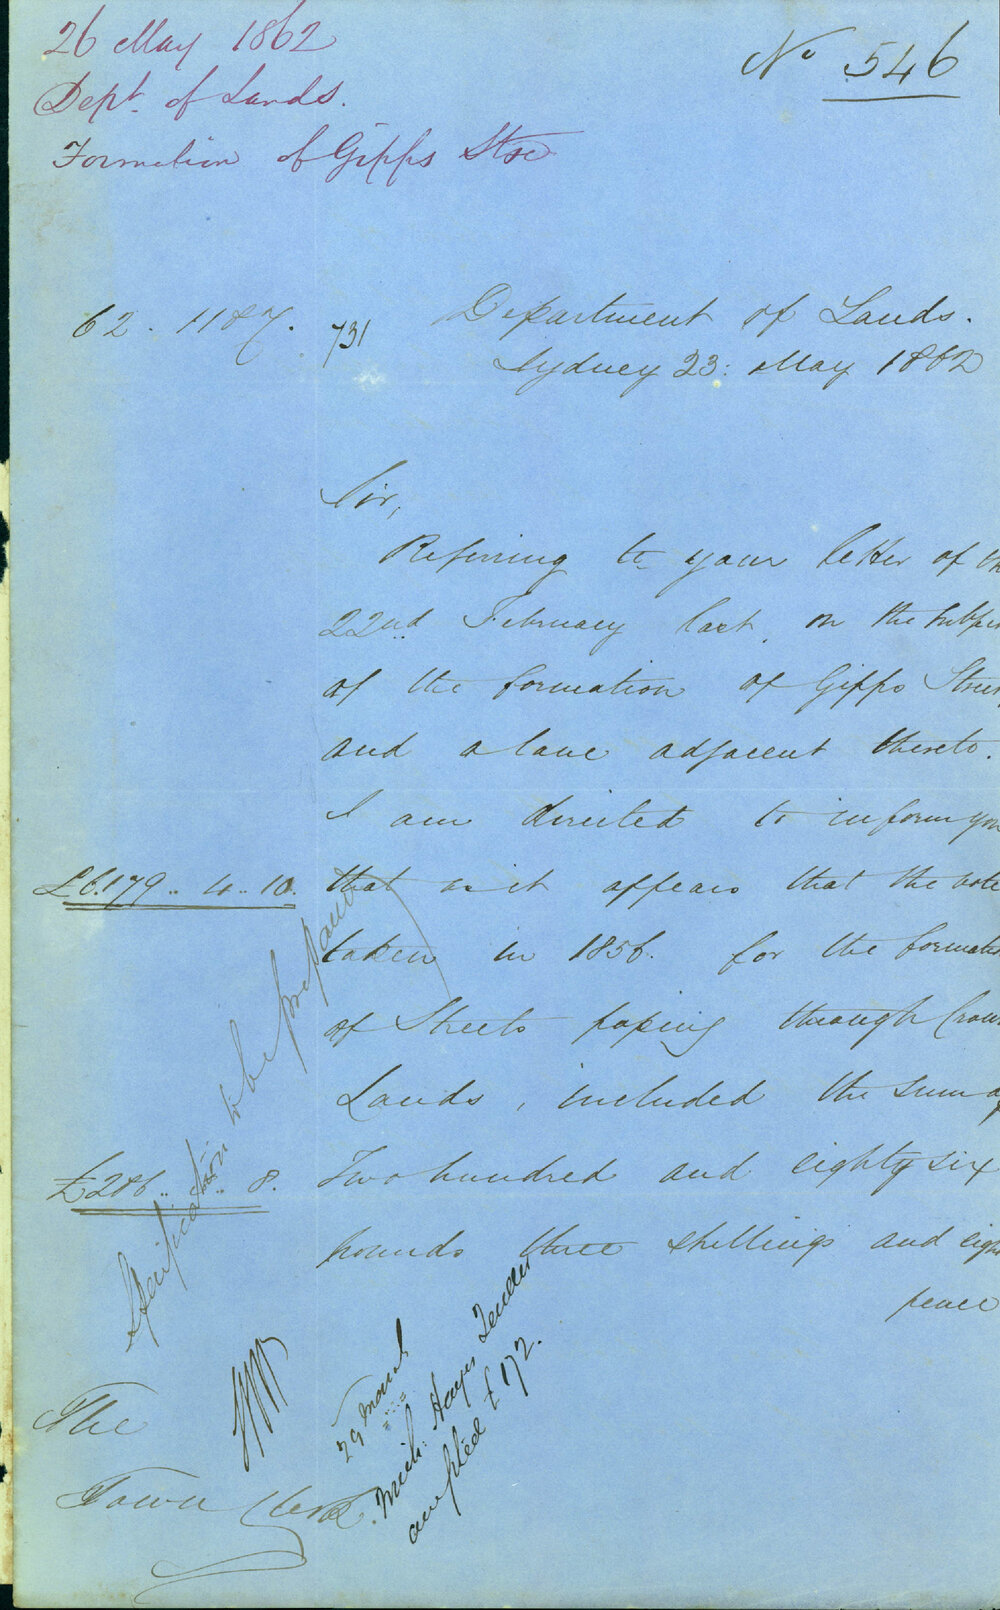 26 May 1862
Dept. of Lands.
Formation of Gipps Stre
No 546
62. 1187. 731
Department of Lands.
Sydney 23: May 1862
Sir,
Referring to your letter of th
22nd February last, on the subje
of the formation of Gipps Street
and a lane adjacent thereto.
I am directed to inform you
£6.179 .. 4 .. 10. that as it appears that the vote
taken in 1856. for the formatio
of Streets passing through Crow
Lands, included the sum of
£286 .. 3 .. 8. Two hundred and eighty six
pounds three shillings and eigh
pence
Specification to be prepared
29 March
Mich: Hayes Tender
accepted £172.
The
Town Clerk.